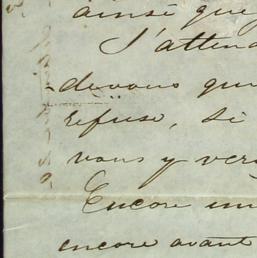 ainsi que
J'attend
devous que
refuse, si
vous y ver
Encore un
encore avant